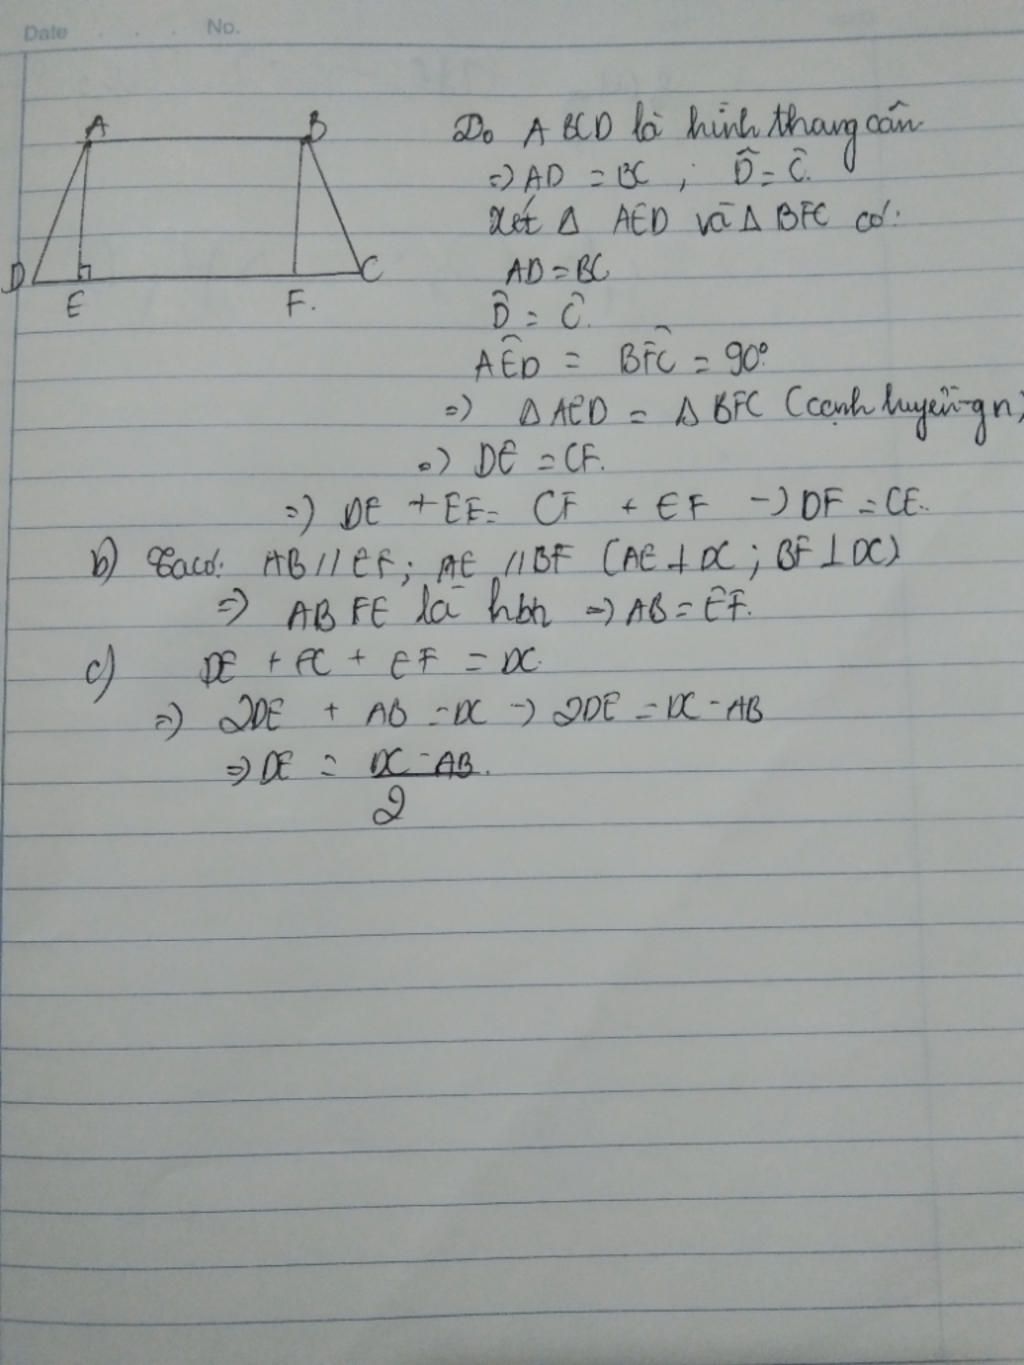 Date No.
A B
D E F. C
Do ABCD là hình thang cân
=> AD = BC ; D̂ = Ĉ.
Xét Δ AED và Δ BFC có:
AD = BC
D̂ = Ĉ.
AÊD = BF̂C = 90°.
=> Δ AED = Δ BFC (cạnh huyền - gn)
=> DE = CF.
=> DE + EF = CF + EF -> DF = CE.
b) Ta có: AB // EF ; AE // BF (AE ⊥ DC ; BF ⊥ DC)
=> ABFE là hbh => AB = EF.
c) DE + FC + EF = DC.
=> 2DE + AB = DC -> 2DE = DC - AB
=> DE = DC - AB.
2